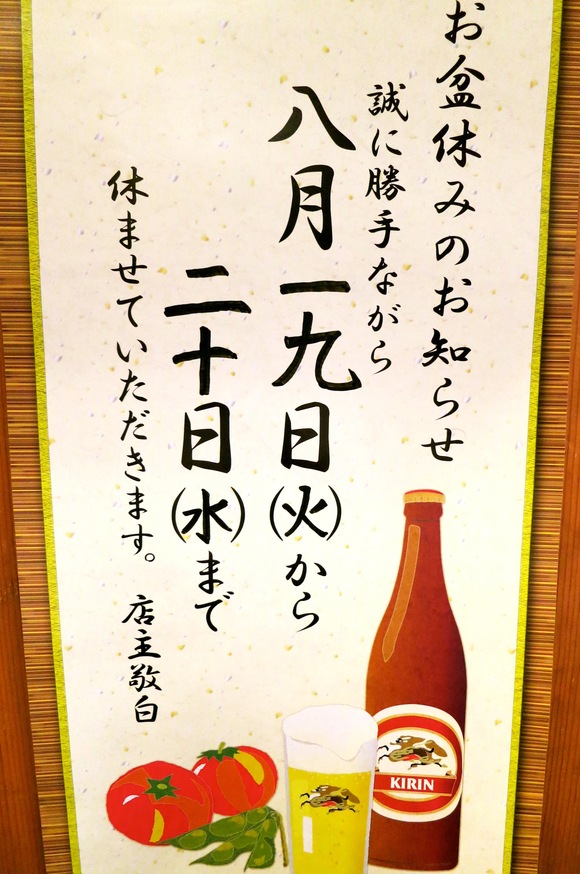 お盆休みのお知らせ
誠に勝手ながら
八月一九日㈫から
二十日㈬まで
休ませていただきます。
店主敬白
KIRIN